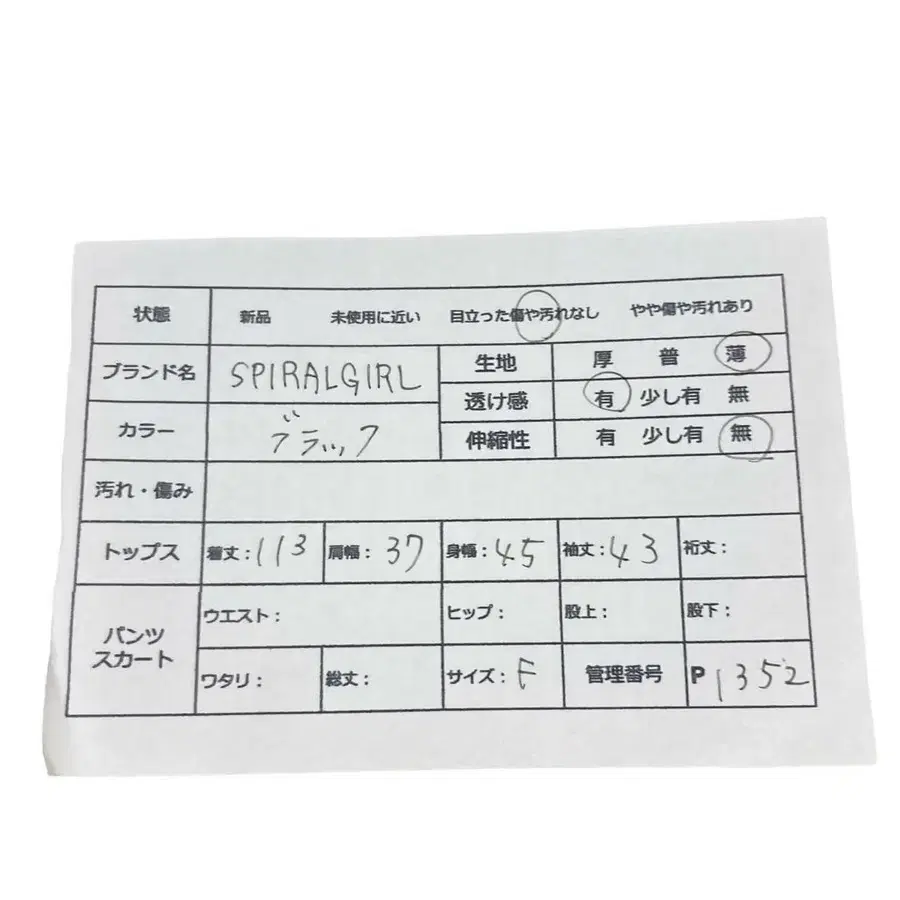 状態 新品 未使用に近い 目立った傷や汚れなし やや傷や汚れあり
ブランド名 SPIRALGIRL 生地 厚 普 薄
透け感 有 少し有 無
カラー ブラック 伸縮性 有 少し有 無
汚れ・傷み
トップス 着丈：113 肩幅：37 身幅：45 袖丈：43 裄丈：
パンツ スカート ウエスト： ヒップ： 股上： 股下：
ワタリ： 総丈： サイズ：F 管理番号 P1352